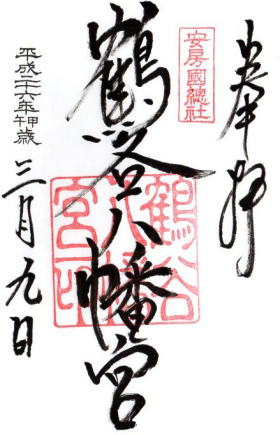 奉拝
安房國總社
鶴谷八幡宮
鶴谷八幡宮印
平成二十六年甲午歳
三月九日